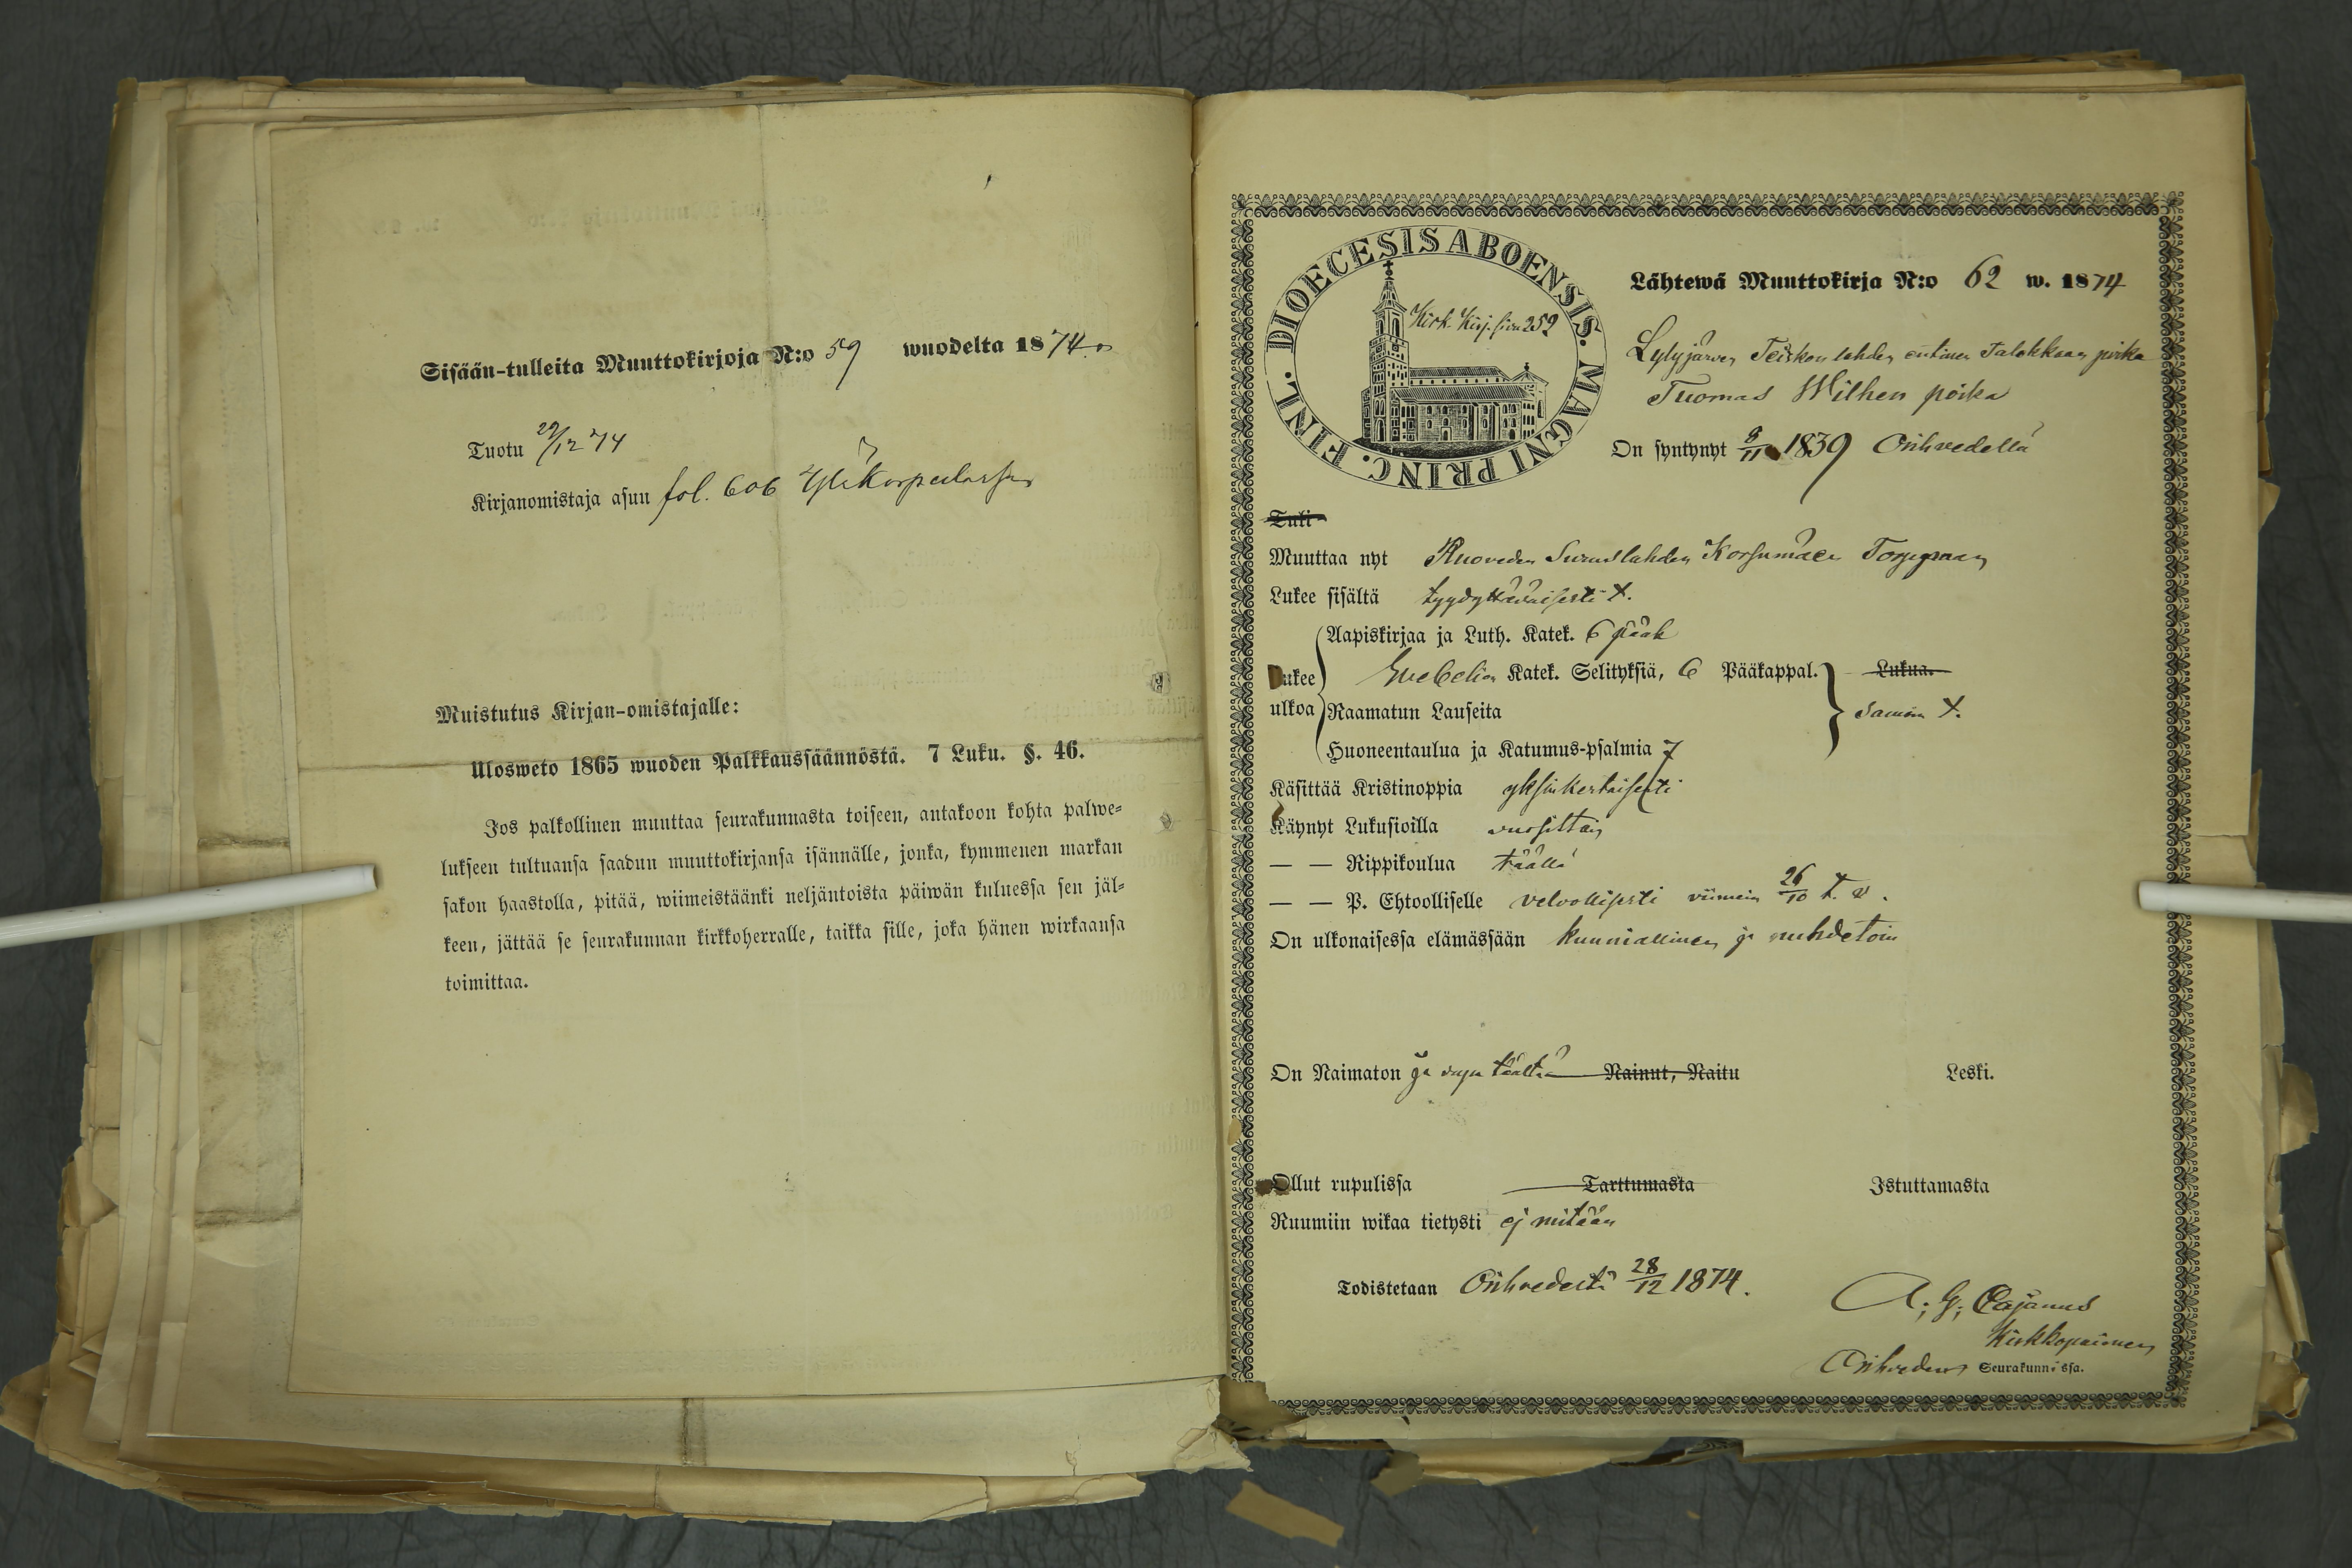 Sisään-tulleita Muuttokirjoja N:o 59 wuodelta 1874.
Tuotu 29/12 74
Kirjanomistaja asuu fol. 606
Muistutus Kirjan-omistajalle:
Ulosweto 1865 wuoden Palkkaussäännöstä. 7 Luku. §. 46.
Jos palkollinen muuttaa seurakunnasta toiseen, antakoon kohta palwe-
lukseen tultuansa saadun muuttokirjansa isännälle, jonka, kymmenen markan
sakon haastolla, pitää, wiimeistäänki neljäntoista päiwän kuluessa sen jäl-
keen, jättää se seurakunnan kirkkoherralle, taikka sille, joka hänen wirkaansa
toimittaa.
DIOECESIS ABOENSIS. MAGNI PRINC. FINL.
Kirk. Kirj. sivu 252
Lähtewä Muuttokirja N:o 62 w. 1874
Lylyjärven Teiskonlahden entinen Talokkaan poika
Tuomas Wilhen poika
On syntynyt 9/11 1839 Orihvedellä
Tuli
Muuttaa nyt Ruoveden Torppaan
Lukee sisältä tyydyttäväisesti t.
Aapiskirjaa ja Luth. Katek. 6 pääk
Lukee Katek. Selityksiä, 6 Pääkappal. Lukua.
ulkoa Raamatun Lauseita samoin t.
Huoneentaulua ja Katumus-psalmia 7
Käsittää Kristinoppia yksinkertaisesti
Käynyt Lukusioilla vuosittain
— — Rippikoulua täällä
— — P. Ehtoolliselle velvollisesti viimein 26/10 t. v.
On ulkonaisessa elämässään kunniallinen ja nuhdetoin
On Naimaton ja vapa täältä Nainut, Naitu Leski.
Ollut rupulissa Tarttumasta Istuttamasta
Ruumiin wikaa tietysti ej mitään
Todistetaan Orihvedestä 28/12 1874.
A. G. Cajanus
Kirkkopaimen
Orihveden Seurakunnissa.